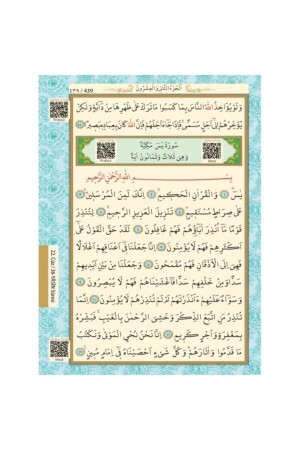 ٤٣٩ / 439 اَلْجُزْءُ الثَّانِي وَالْعِشْرُونَ
وَلَوْ يُؤَاخِذُ اللّٰهُ النَّاسَ بِمَا كَسَبُوا مَا تَرَكَ عَلٰى ظَهْرِهَا مِنْ دَٓابَّةٍ وَلٰكِنْ
يُؤَخِّرُهُمْ اِلٰٓى اَجَلٍ مُسَمًّى فَاِذَا جَٓاءَ اَجَلُهُمْ فَاِنَّ اللّٰهَ كَانَ بِعِبَادِه۪ بَص۪يرًا ﴿٤٥﴾
سُورَةُ يٰسٓ مَكِّيَّةٌ
وَهِيَ ثَلَاثٌ وَثَمَانُونَ اٰيَةً
بِسْمِ اللّٰهِ الرَّحْمٰنِ الرَّح۪يمِ
يٰسٓ ﴿١﴾ وَالْقُرْاٰنِ الْحَك۪يمِ ﴿٢﴾ اِنَّكَ لَمِنَ الْمُرْسَل۪ينَ ﴿٣﴾
عَلٰى صِرَاطٍ مُسْتَق۪يمٍ ﴿٤﴾ تَنْز۪يلَ الْعَز۪يزِ الرَّح۪يمِ ﴿٥﴾ لِتُنْذِرَ
قَوْمًا مَٓا اُنْذِرَ اٰبَٓاؤُ۬هُمْ فَهُمْ غَافِلُونَ ﴿٦﴾ لَقَدْ حَقَّ الْقَوْلُ عَلٰٓى
اَكْثَرِهِمْ فَهُمْ لَا يُؤْمِنُونَ ﴿٧﴾ اِنَّا جَعَلْنَا ف۪ٓي اَعْنَاقِهِمْ اَغْلَالًا
فَهِيَ اِلَى الْاَذْقَانِ فَهُمْ مُقْمَحُونَ ﴿٨﴾ وَجَعَلْنَا مِنْ بَيْنِ اَيْد۪يهِمْ
سَدًّا وَمِنْ خَلْفِهِمْ سَدًّا فَاَغْشَيْنَاهُمْ فَهُمْ لَا يُبْصِرُونَ ﴿٩﴾
وَسَوَٓاءٌ عَلَيْهِمْ ءَاَنْذَرْتَهُمْ اَمْ لَمْ تُنْذِرْهُمْ لَا يُؤْمِنُونَ ﴿١٠﴾ اِنَّمَا
تُنْذِرُ مَنِ اتَّبَعَ الذِّكْرَ وَخَشِيَ الرَّحْمٰنَ بِالْغَيْبِ فَبَشِّرْهُ
بِمَغْفِرَةٍ وَاَجْرٍ كَر۪يمٍ ﴿١١﴾ اِنَّا نَحْنُ نُحْيِ الْمَوْتٰى وَنَكْتُبُ
مَا قَدَّمُوا وَاٰثَارَهُمْ وَكُلَّ شَيْءٍ اَحْصَيْنَاهُ ف۪ٓي اِمَامٍ مُب۪ينٍ ﴿١٢﴾
22. Cüz / 36-YÂSÎN Suresi